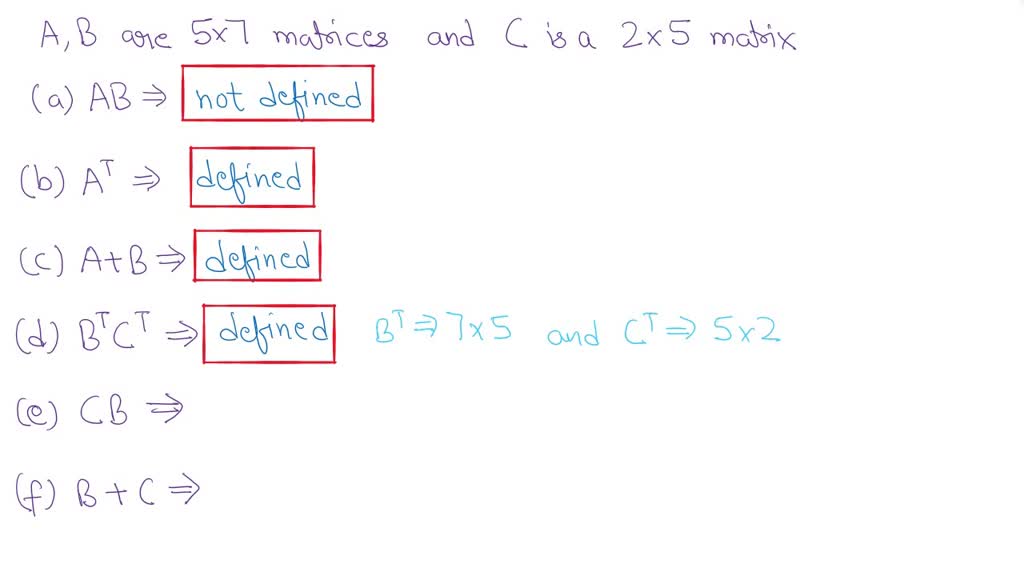 A, B are 5x7 matrices and C is a 2x5 matrix
(a) AB ⇒ not defined
(b) Aᵀ ⇒ defined
(c) A+B ⇒ defined
(d) BᵀCᵀ ⇒ defined Bᵀ ⇒ 7x5 and Cᵀ ⇒ 5x2
(e) CB ⇒
(f) B + C ⇒